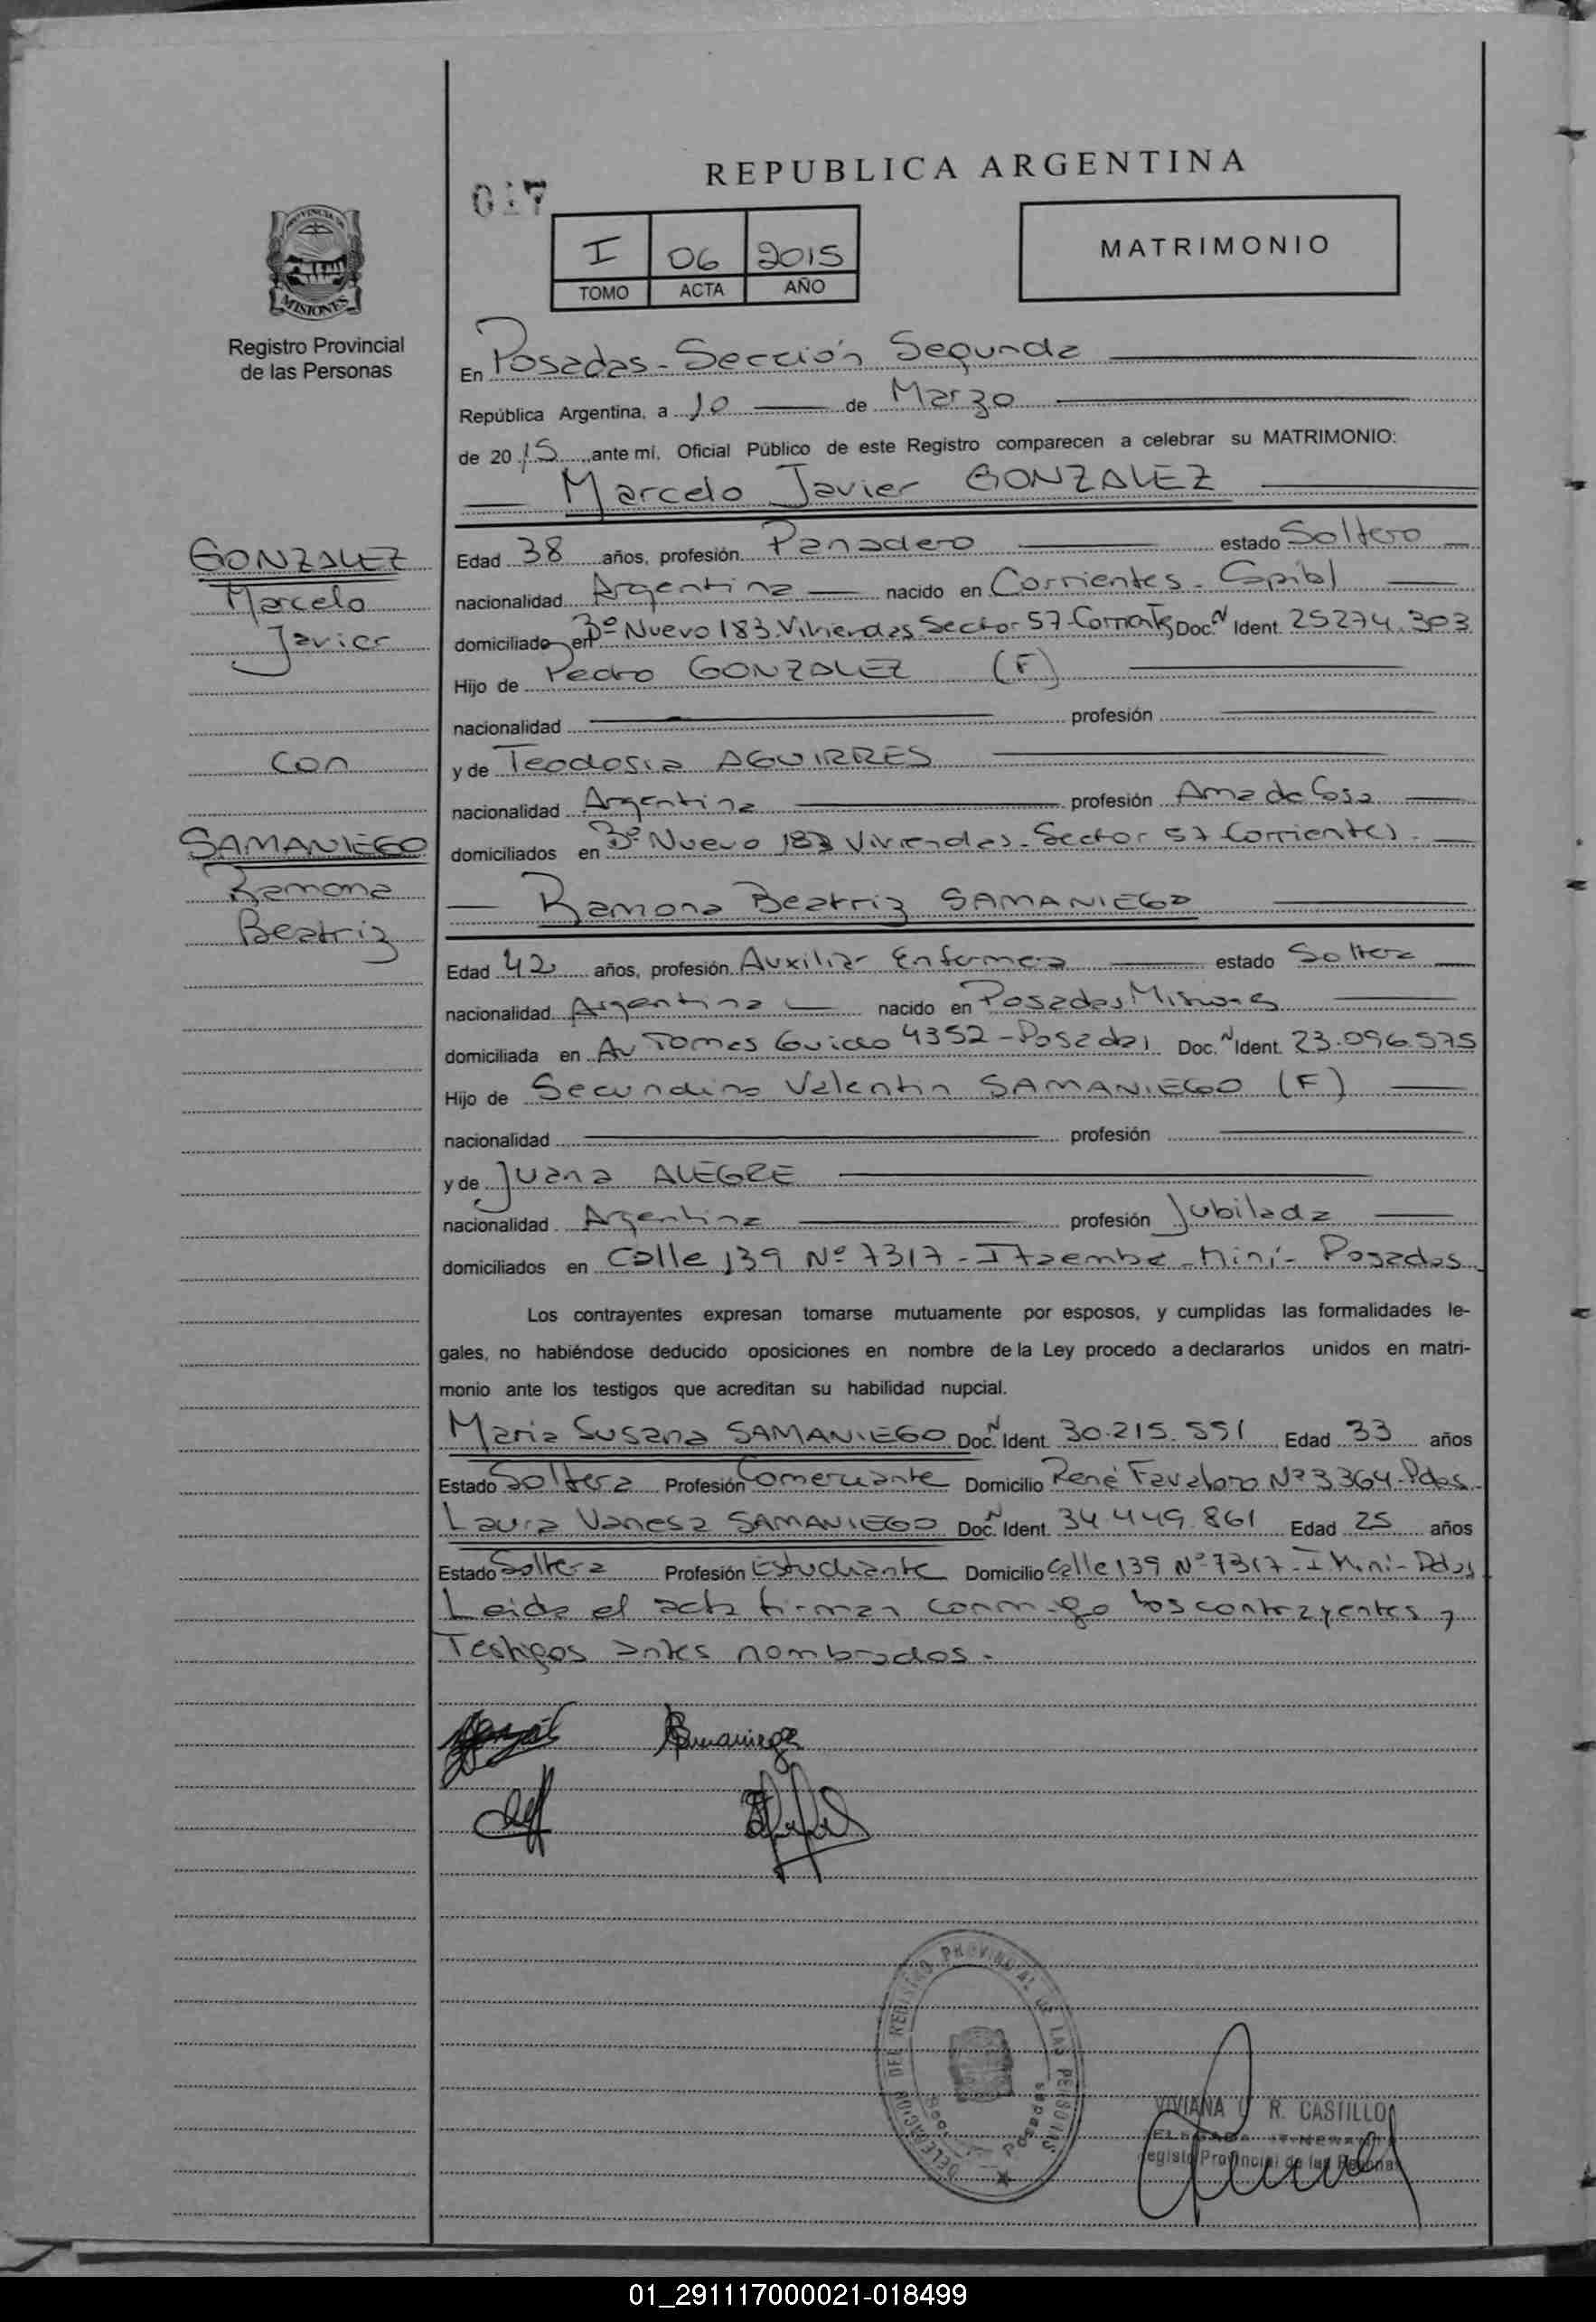 REPUBLICA ARGENTINA
017
I 06 2015
TOMO ACTA AÑO
MATRIMONIO
PROVINCIA DE
MISIONES
Registro Provincial
de las Personas
En Posadas - Sección Segunda
República Argentina, a 10 de Marzo
de 2015 ante mí, Oficial Público de este Registro comparecen a celebrar su MATRIMONIO:
Marcelo Javier GONZALEZ
GONZALEZ
Marcelo
Javier
con
SAMANIEGO
Ramona
Beatriz
Edad 38 años, profesión Panadero estado Soltero
nacionalidad Argentina nacido en Corrientes - Capital
domiciliado en Bº Nuevo 183 Viviendas Sector 57 - Corrientes Doc. N Ident. 25274.303
Hijo de Pedro GONZALEZ (F)
nacionalidad profesión
y de Teodosia AGUIRRES
nacionalidad Argentina profesión Ama de Casa
domiciliados en Bº Nuevo 183 Viviendas - Sector 57 Corrientes -
Ramona Beatriz SAMANIEGO
Edad 42 años, profesión Auxiliar Enfermera estado Soltera
nacionalidad Argentina nacido en Posadas Misiones
domiciliada en Av Tomas Guido 4352 - Posadas Doc. N Ident. 23.096.575
Hijo de Secundino Valentin SAMANIEGO (F)
nacionalidad profesión
y de Juana ALEGRE
nacionalidad Argentina profesión Jubilada
domiciliados en Calle 139 Nº 7317 - Itaembe - Mini - Posadas
Los contrayentes expresan tomarse mutuamente por esposos, y cumplidas las formalidades le-
gales, no habiéndose deducido oposiciones en nombre de la Ley procedo a declararlos unidos en matri-
monio ante los testigos que acreditan su habilidad nupcial.
Maria Susana SAMANIEGO Doc. N Ident. 30.215.551 Edad 33 años
Estado Soltera Profesión Comerciante Domicilio René Favaloro Nº 3364 - Pdas.
Laura Vanesa SAMANIEGO Doc. N Ident. 34.449.861 Edad 25 años
Estado Soltera Profesión Estudiante Domicilio Calle 139 Nº 7317 - I. Mini - Pdas
Leida el acta firman conmigo los contrayentes y
Testigos antes nombrados.
Samaniego
DELEGACION DEL REGISTRO PROVINCIAL DE LAS PERSONAS
Posadas
VIVIANA R. CASTILLO
DELEGADA ITINERANTE
Registro Provincial de las Personas
01_291117000021-018499